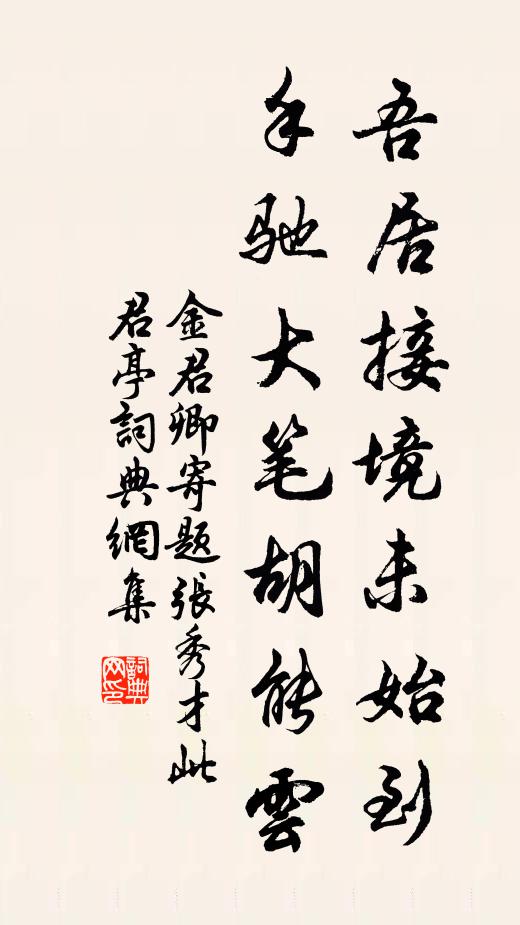 吾居接境未始到
手驰大笔胡能雲
金君卿寄题張秀才此
君亭詞典網集
詞典網印